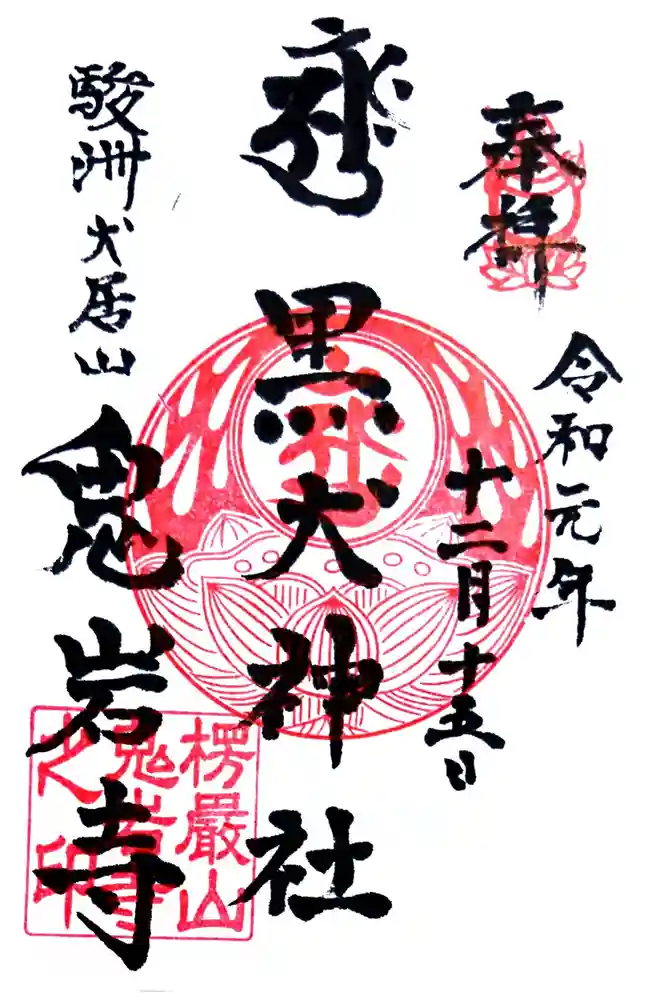 奉拝
令和元年
十二月十五日
黒犬神社
駿洲犬居山
鬼岩寺
楞嚴山
鬼岩寺
之印